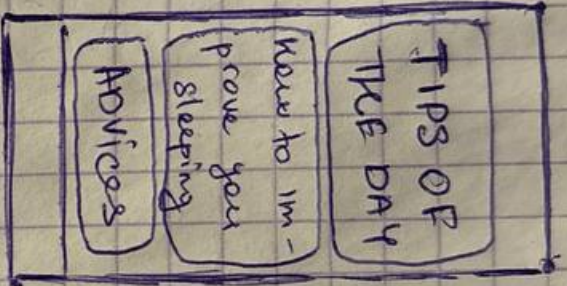 TIPS OF
THE DAY
How to im-
prove you
sleeping
ADVices